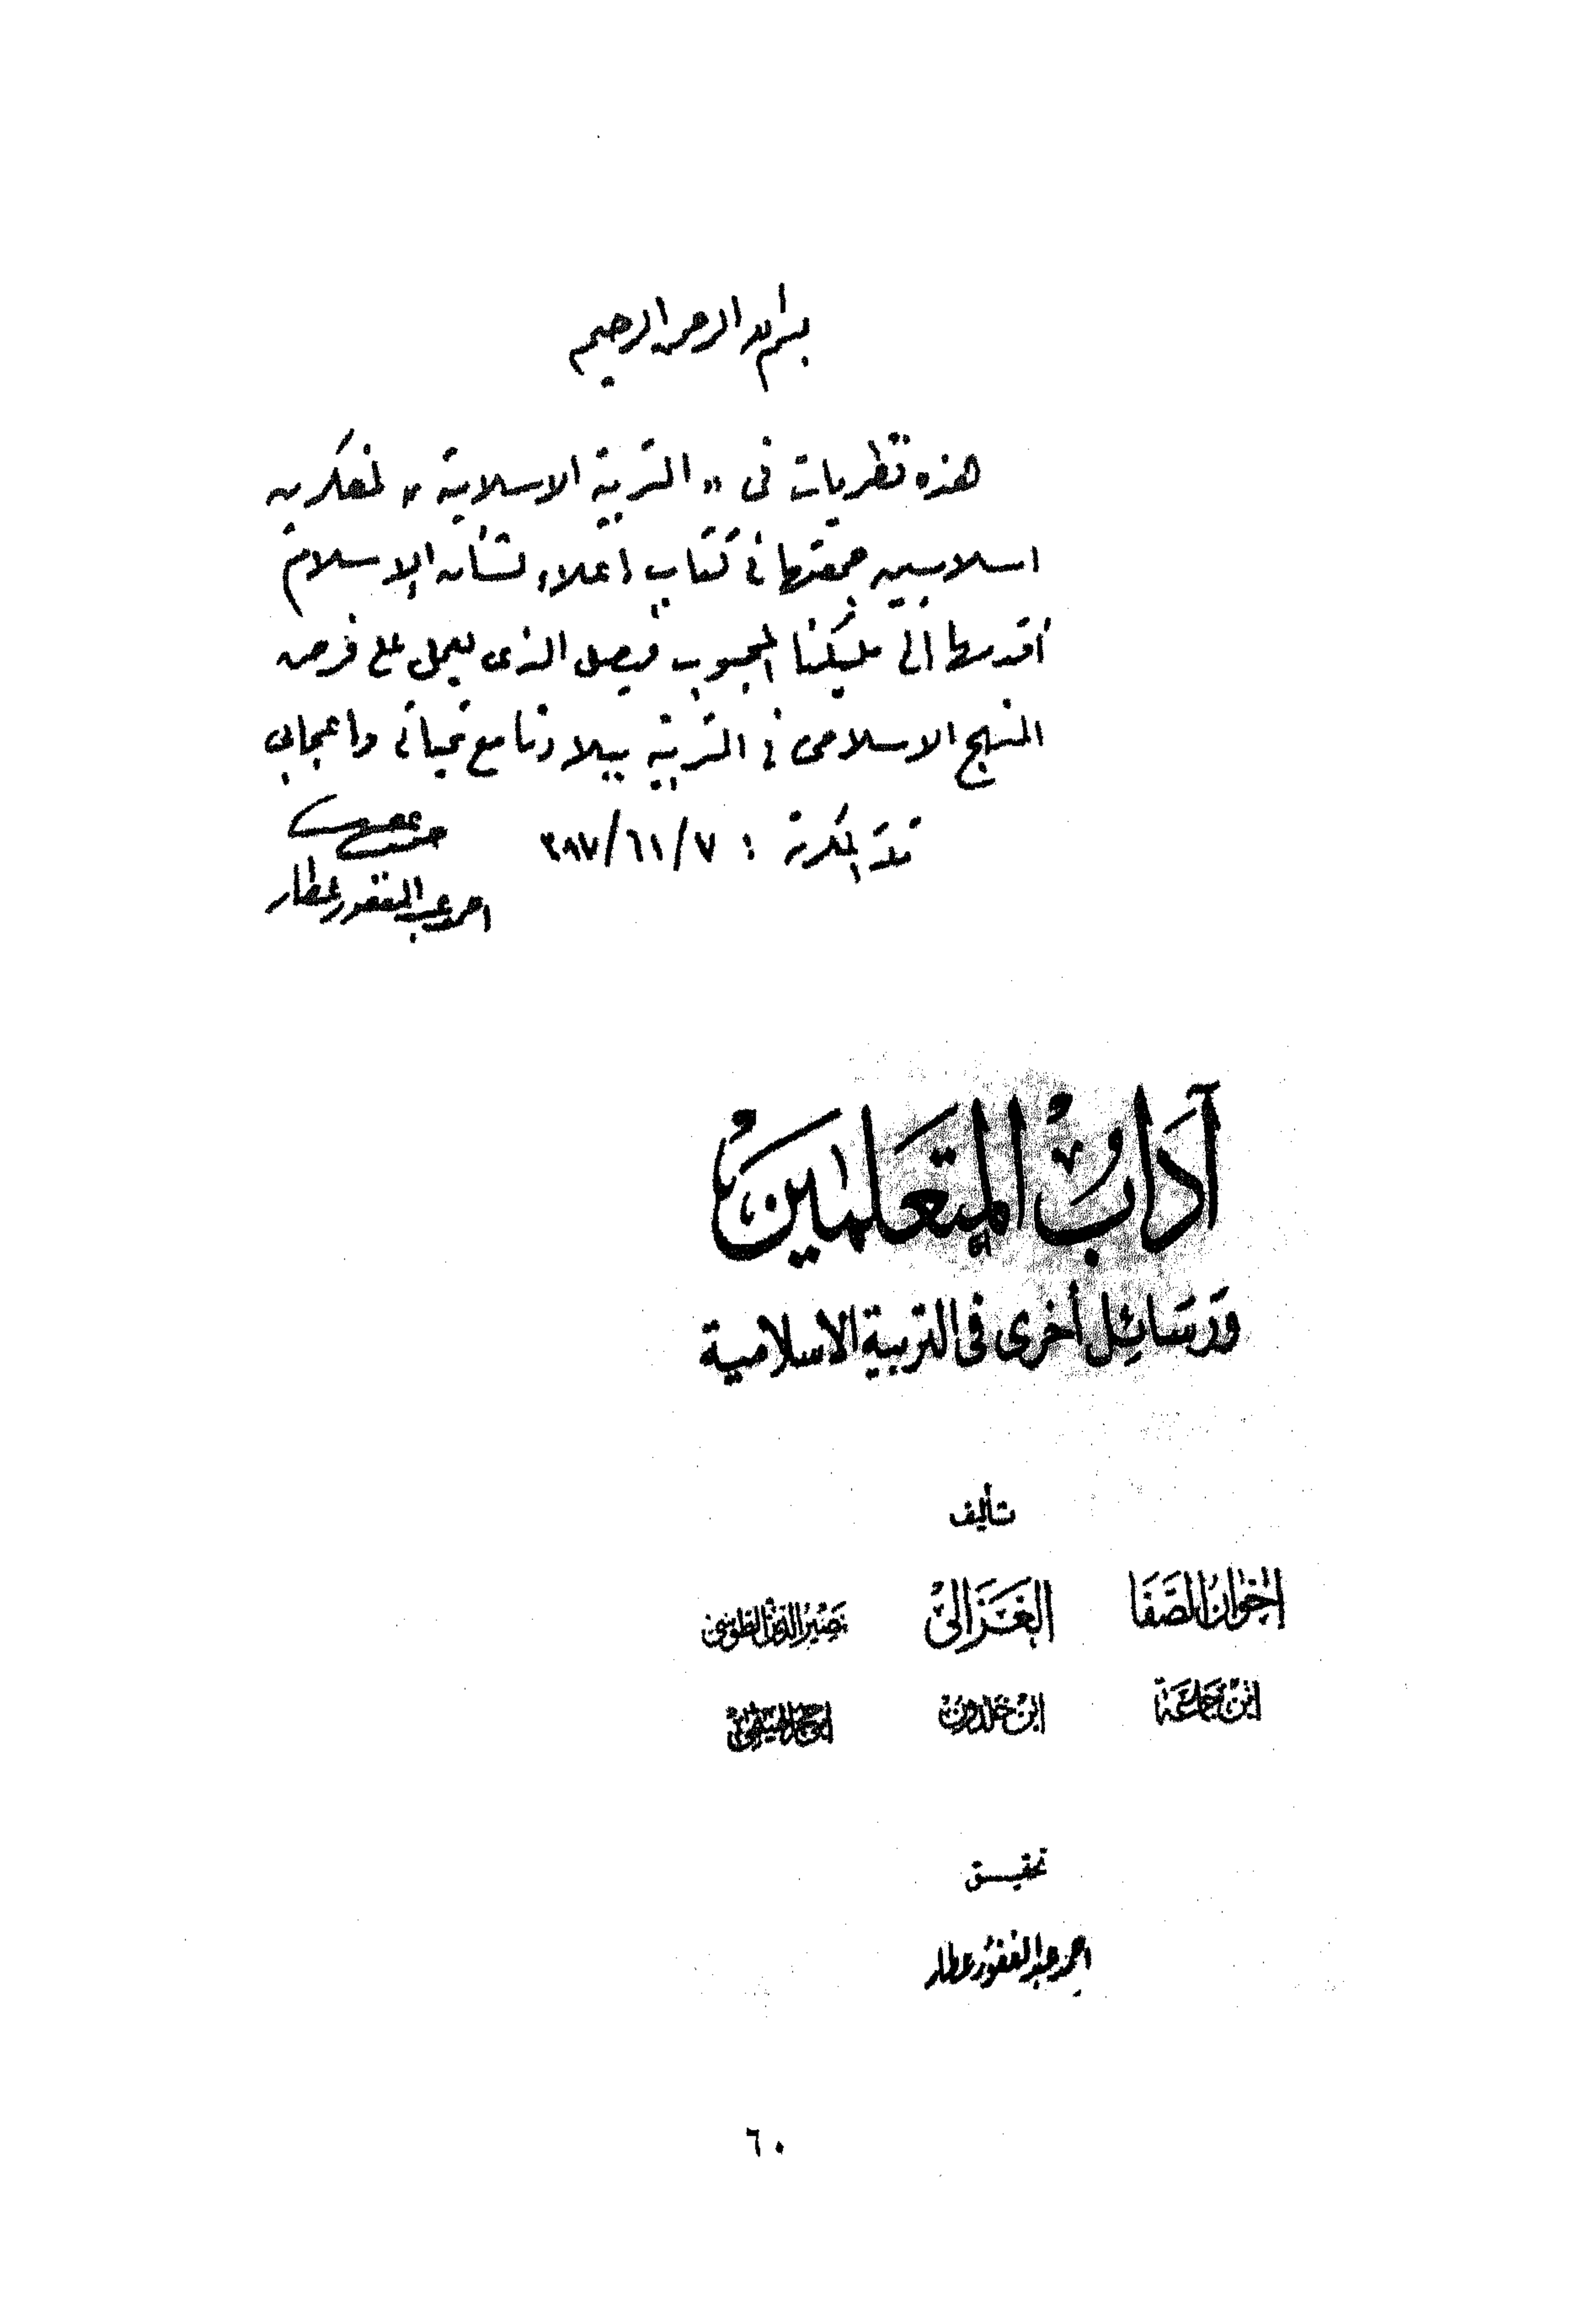 بسم الله الرحمن الرحيم
هذه نظريات في « التربية الاسلامية » لمفكرين
اسلاميين جمعتها في كتاب إعلاء لشأن الإسلام
أقدمها الى مليكنا المحبوب فيصل الذي يعمل على فرض
المنهج الاسلامي في التربية ببلادنا مع تحياتي وإعجابي
مكة المكرمة :
احمد عبد الغفور عطار
آدَابُ المتَعَلمين
وَرَسَائِل أخرى في التربية الاسلامية
تأليف
اخوان الصَّفَا الغَزالي نصير الدين الطوسي
ابن جماعة ابن خلدون ابن حجر الهيتمي
تحقيق
احمد عبد الغفور عطار
٦٠